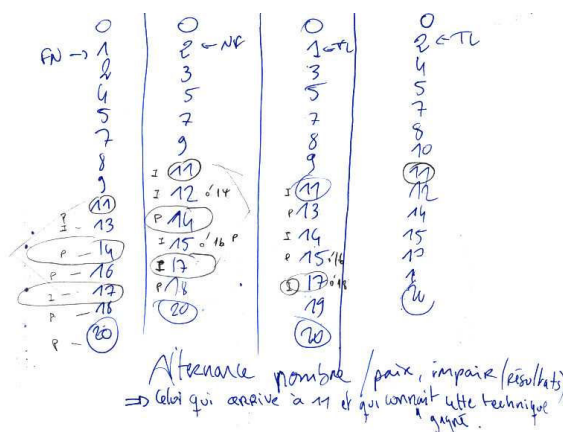 0
FN → 1
2
4
5
7
8
9
11
P
I - 13
P - 14
P - 16
I - 17
P - 18
P - 20
0
2 ← NF
3
5
7
9
I 11
I 12 ó 14
P 14
I 15 ó 16 P
I 17
P 18
20
0
1 ← TL
3
5
7
8
9
I 11
P 13
I 14
P 15 ó 16
I 17 ó 18
19
20
0
2 ← TL
4
5
7
8
10
11
12
14
15
20
Alternance nombre / paix, impair / résultats
⇒ Celui qui arrive à 11 et qui connaît cette technique
a gagné.